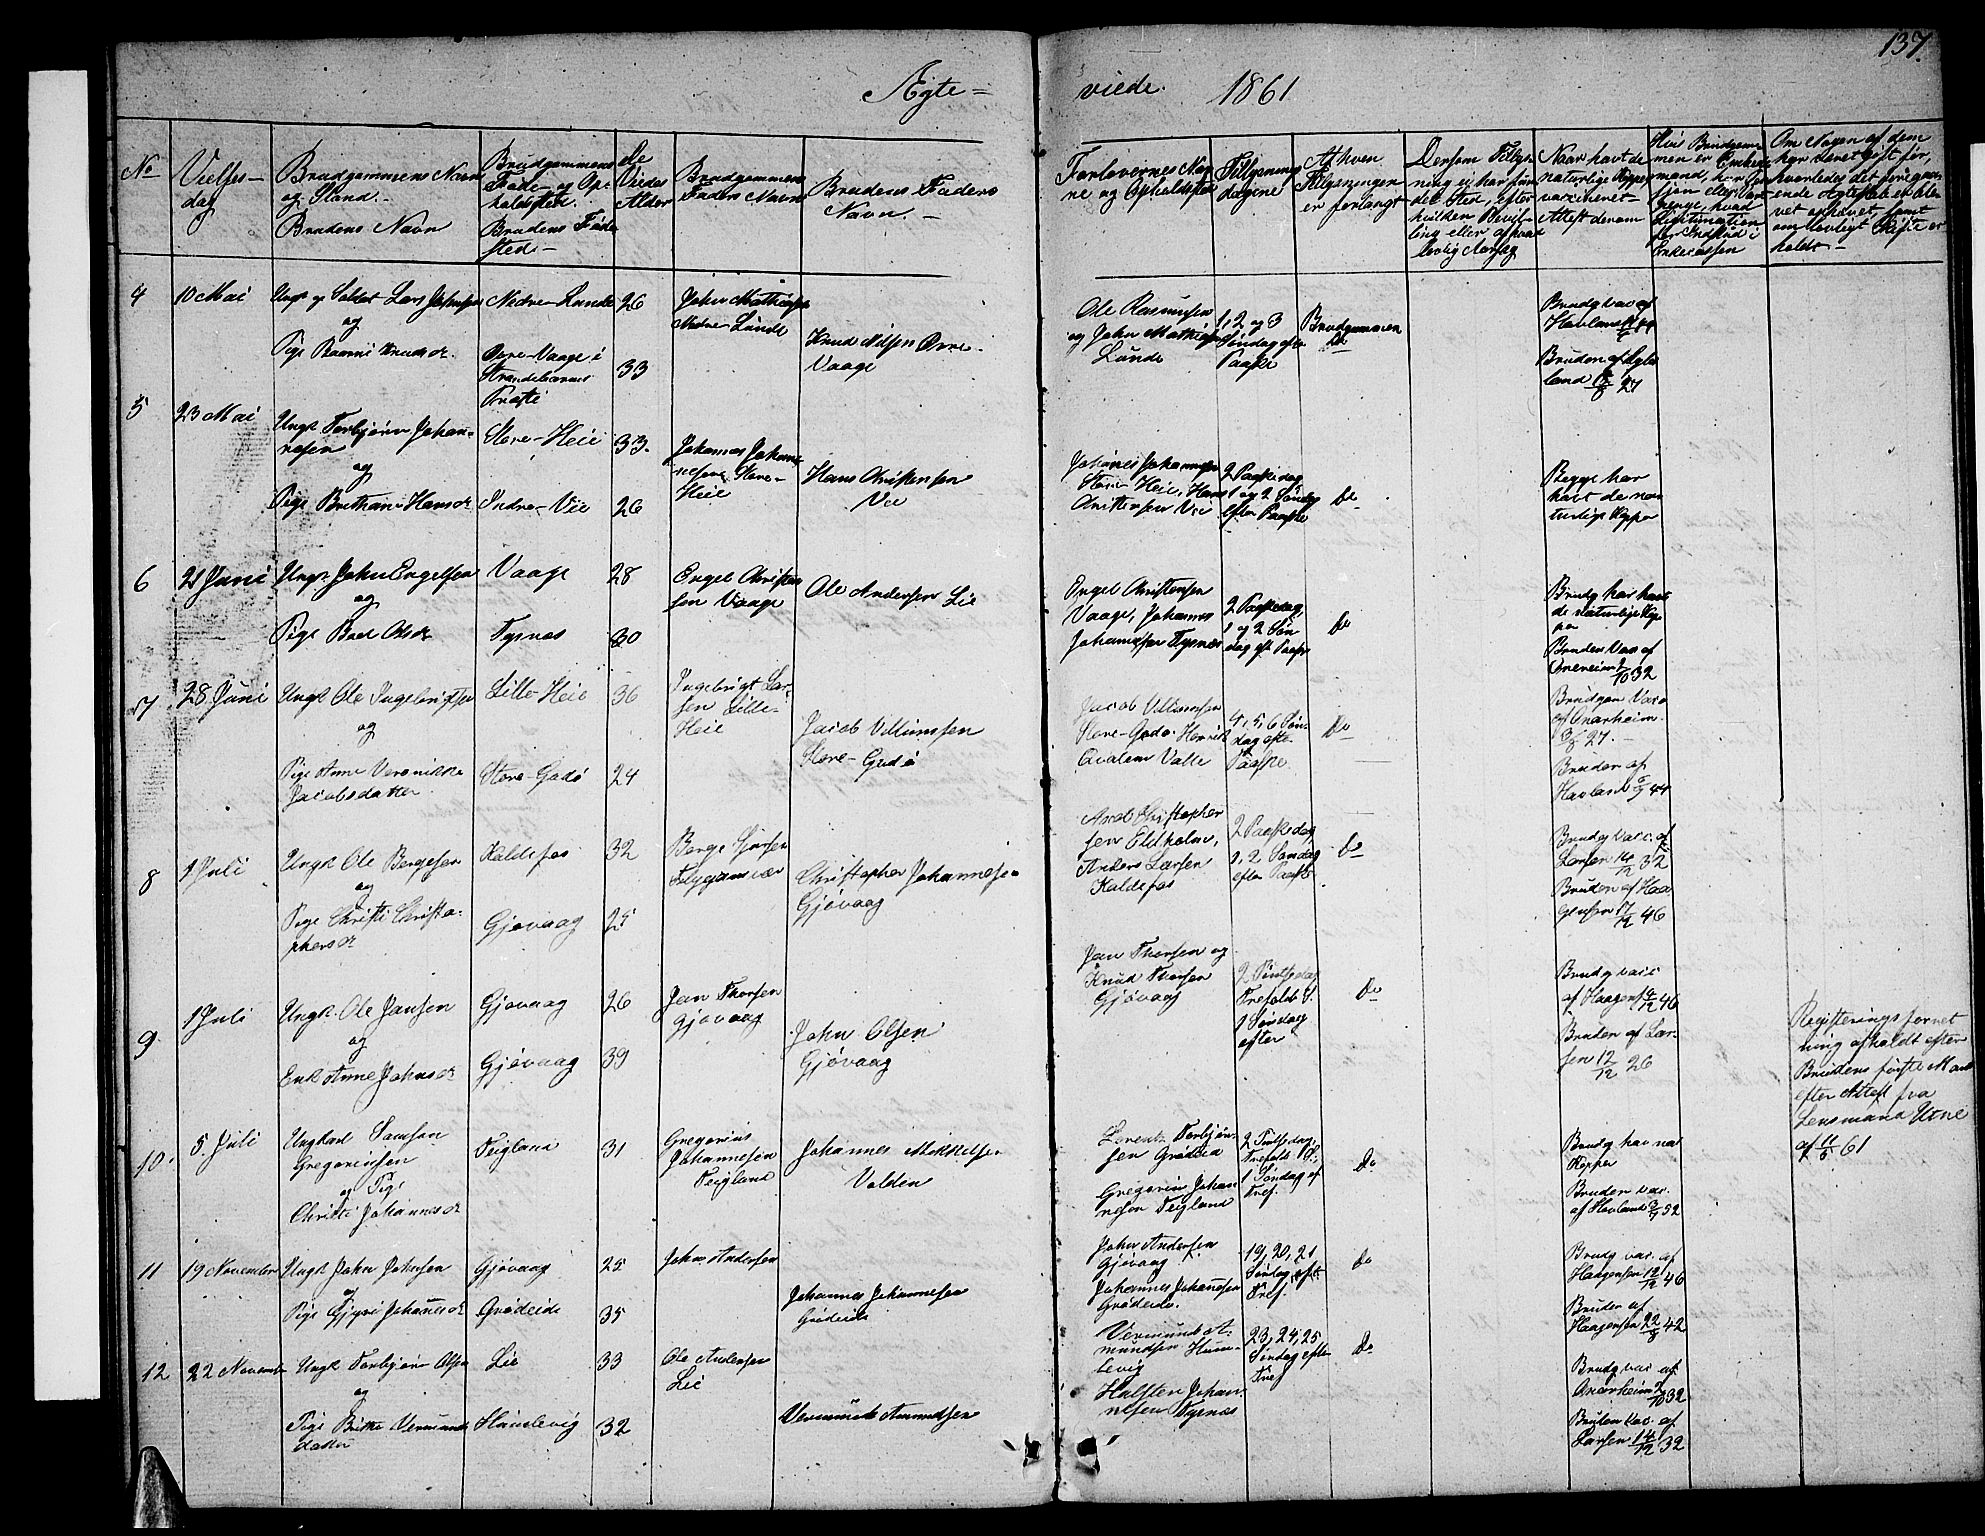 137.
Ægte-
viede. 1861
No
Vielses-
dag
Brudgommens Navn
og Stand.-
Brudens Navn
Brudgommens
Føde- og Op-
holdssted.
Brudens Føde-
sted-
De
Viedes
Alder
Brudgommens
Faders Navn
Brudens Faders
Navn.-
Forlovernes Nav-
ne og Opholdssted
Tillysnings-
dagene
Af hvem
Tillysningen
er forlangt
Dersom Tillys-
ning ei har fun-
det Sted, efter
hvilken Bevil-
ling eller af hvad
lovlig Aarsag
Naar havt de
naturlige Kopper
vaccineret-
Attest derom
Hvis Brudgom-
men er Enke-
mand,
hvad
Legitimation
for Indskud i
Enkecassen
Om Nogen af dem
har været gift før,
hvorledes det foregaa-
ende Ægteskab er ble-
vet ophævet, samt
om lovligt Skifte er
holdt-
4 10 Mai
Ungk og Soldat Lars Johnsen
og
Pige Knudsdr.
Nedre-Lunde 26
Øvre-Vaage i
Strandebarms
Præsti
33
John Mathiesen
Nedre Lunde
Knud Nilsen Øvre-
Vaage
Ole Rasmusen
og John Mathiesen
Lunde
1, 2 og 3
Søndag efter
Paaske
Brudgommen
Do
Brudg vac af
Bruden af
land 27
5 23 Mai
Ungk Torbjørn Johan-
nesen
og
Pige Brithani Hansdr
Store-Heie 33.
Indre-Vie 26
Johannes Johan-
nesen Store-
Heie
Hans Christensen
Vie
Johannes Johannesen
Store-Heie, Hans
Christensen Vie
2 Paaskedag
1 og 2 Søndag
efter Paaske
Do
Begge har
havt de na-
turlige Kopper
6 21 Juni
Ungk John Engelsen
og
Pige Olsdr
Vaage 28
Tysnæs 30
Engel Christen-
sen Vaage
Ole Andersen Lie
Engel Christensen
Vaage, Johannes
Johannesen Tysnæs
2 Paaskedag
1 og 2 Søn-
dag eft Paaske
Do
Brudg har havt
de naturlige Kop-
per
Bruden vac af
Onarheim 32
7 28 Juni
Ungk Ole Ingebrigtsen
og
Pige Anne Veronikke
Jacobsdatter
Lille-Heie 36
Store-Godø 24
Ingebrigt Lar-
sen Lille-
Heie
Jacob Villumsen
Store-Godø
Jacob Villumsen
Store-Godø. Henrik
Valle
4, 5, 6 Søn-
dag efter
Paaske
Do
Brudgom Vacc
af Onarheim
27.-
Bruden af
Havland 44
8 1 Juli
Ungk Ole Bergesen
og
Pige Christi Christo-
phersdr
Kaldefos 32
Gjøvaag 25
Berge
Christopher Johannesen
Gjøvaag
Christopher-
sen Eldholm,
Anders Larsen
Kaldefos
2 Paaskedag,
1, 2 Søndag
efter Paaske
Do
Brudg vacc. af
Larsen 14/12 32
Bruden af Haa-
gensen 17/12 46
9 1 Juli
Ungk Ole Jansen
og
Enk Anne Johnsdr
Gjøvaag 26
Gjøvaag 39
Jan Thorsen
Gjøvaag
John Olsen
Gjøvaag
Jan Thorsen og
Knud Thorsen
Gjøvaag
2 Pintsedag
Trefoldt S.
1 Søndag
efter
Do
Brudg vacc
af Haagensen 46
Bruden af Lar-
sen 12/12 26
Registeringsforret-
ning afholdt efter
Brudens første Mand
efter Attest fra
Lensmand Utne
af 11/5 61
10. 5. Juli
Ungkarl Samson
Gregoriussen
og Pige
Christi Johannesdr
Teigland 31
Gregorius
Johannesen
Teigland
Johannes Mikkelsen
Valden
Lorents Torbjørn-
sen Grødeid
Gregorius Johan-
nesen Teigland
2 Pintsedag,
Trefolds S.
1 Søndag ef
Tref.
Do
Brudg har nat
Kopper
Bruden vac.
af Havland 52
11 19 November
Ungk John Johnsen
og
Pige Gjyri Johansdr
Gjøvaag 25
Grødeide 35
John Andersen
Johannes Johannesen
Grødeide
John Andersen
Gjøvaag
Johannes Johannesen
Grødeide.
19, 20, 21
Søndag eft
Tref.
do
Brudg vac. af
Haagensen 12/12 46
Bruden af
Haagensen 22/8 42
12 22 Novemb
Ungk Torbjørn Olsen
og
Pige Britta Vermunds-
datter
Lie 33
Humlevig 32
Ole Andersen
Lie
Vermund Amundsen
Vermund A-
mundsen Hum-
levig
Halsten Johan-
nesen Tysnæs
23, 24, 25
Søndag efter
Tref
Do
Brudg vac af
Onarheim 32
Bruden vac. af
Larsen 14/12 32